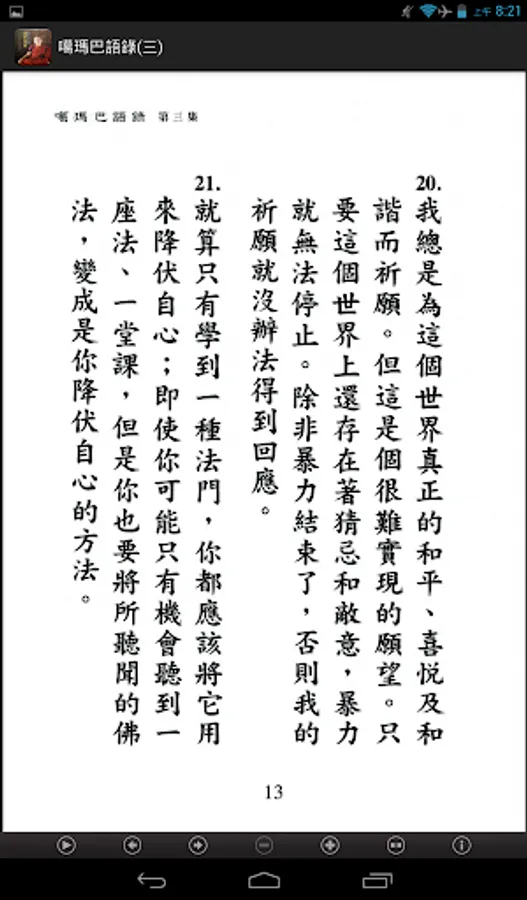 上午 8:21
噶瑪巴語錄(三)
噶瑪巴語錄 第三集
20.
我總是為這個世界真正的和平、喜悅及和
諧而祈願。但這是個很難實現的願望。只
要這個世界上還存在著猜忌和敵意，暴力
就無法停止。除非暴力結束了，否則我的
祈願就沒辦法得到回應。
21.
就算只有學到一種法門，你都應該將它用
來降伏自心；即使你可能只有機會聽到一
座法、一堂課，但是你也要將所聽聞的佛
法，變成是你降伏自心的方法。
13